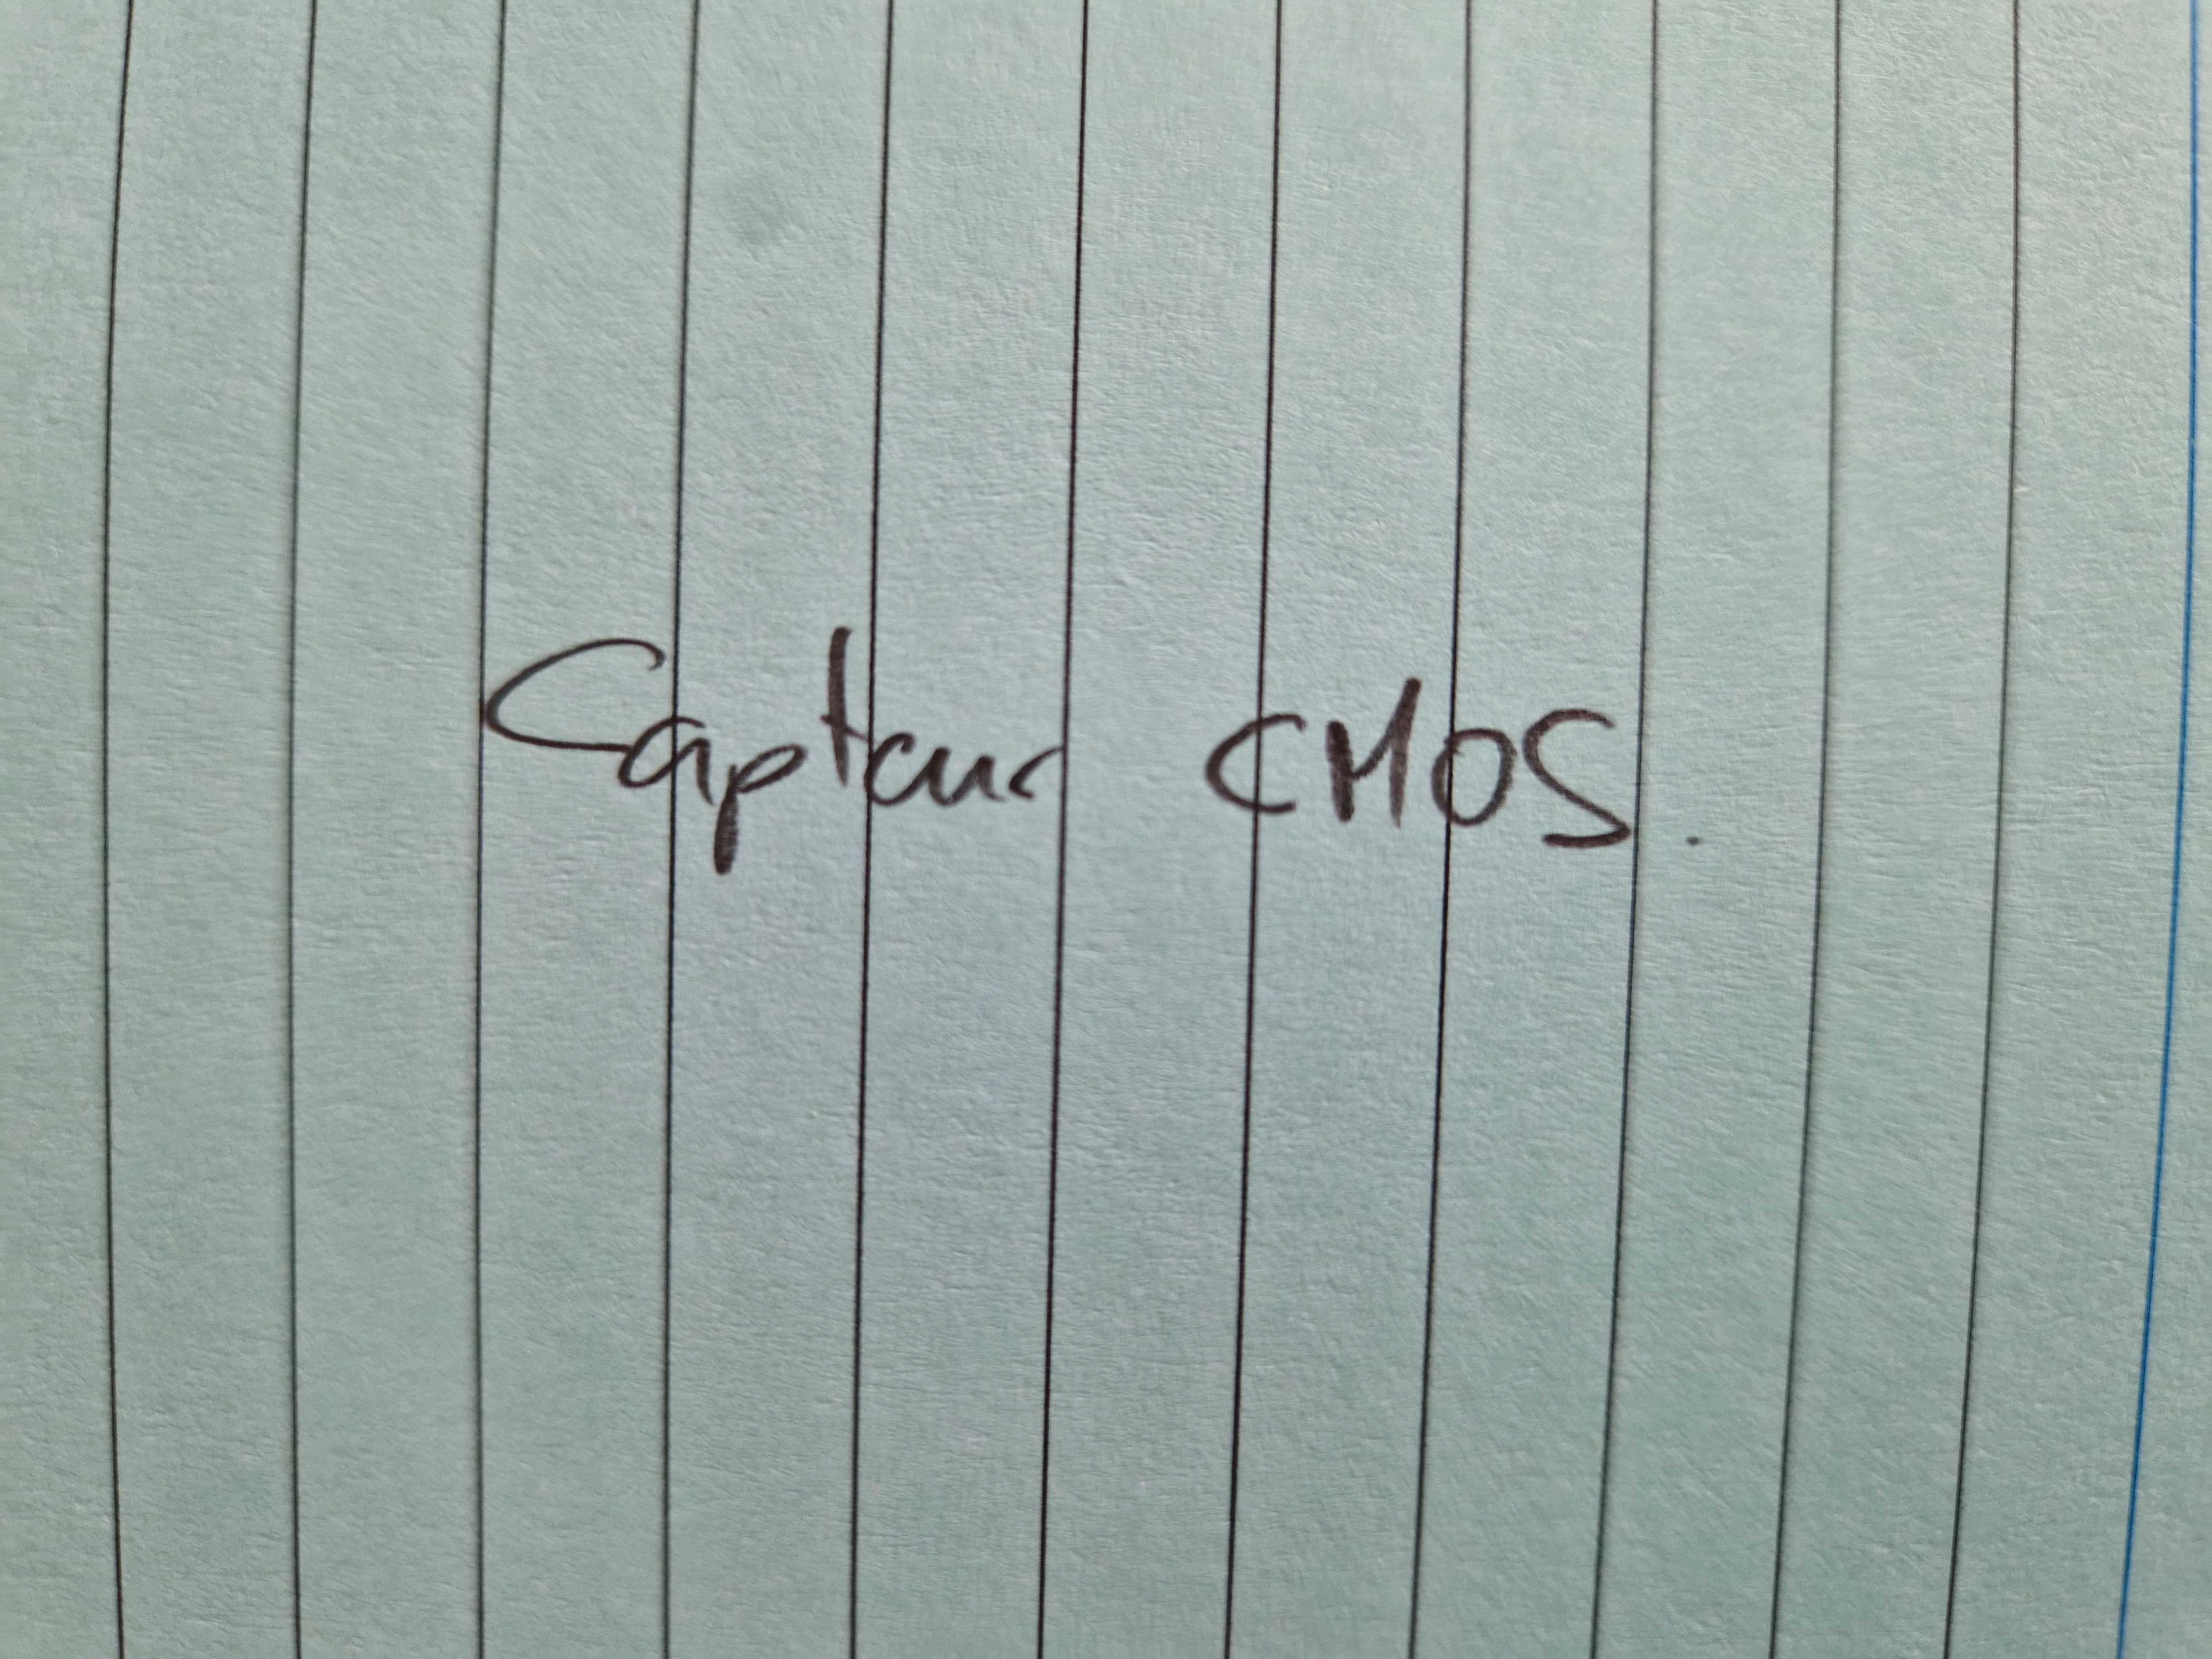 Capteur CMOS.